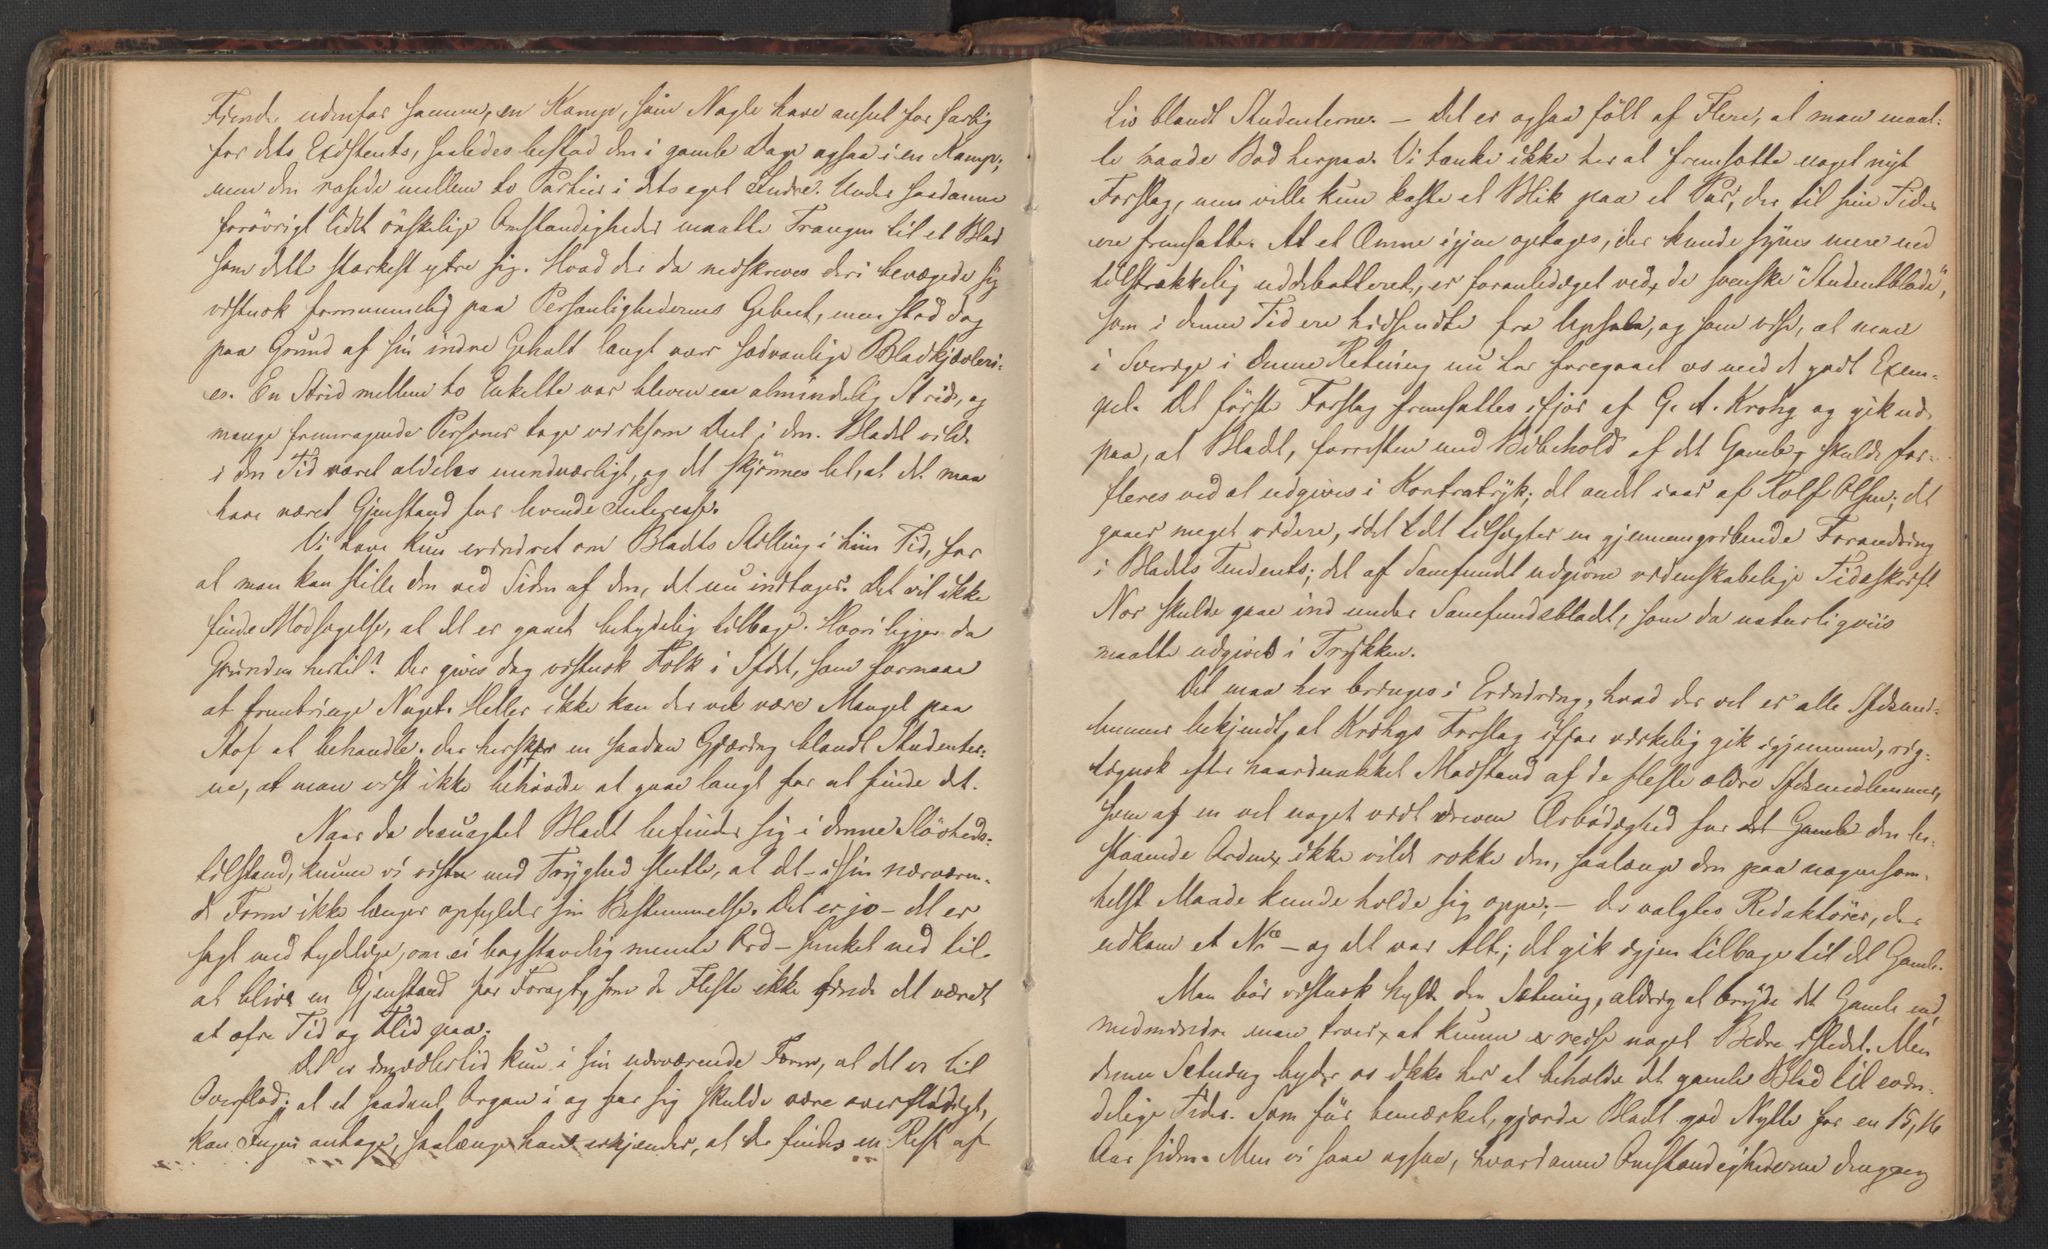 Fiender udenfor samme, en Kamp, som Nogle have anseet for farlig
for dets Existents, saaledes bestod den i gamle Dage ogsaa i en Kamp;
men den rasede mellem to Partier i dets eget Indre. Under saadanne
forövrigt lidt önskelige Omstændigheder maatte Trangen til et Blad
som dette stærkest ytre sig. Hvad der da nedskreves deri bevægede sig
vistnok fornemmelig paa Personlighedernes Gebeet, men stod dog
paa Grund af sin indre Gehalt langt over sædvanlige Bladkjævleri-
er. En Strid mellem to Enkelte var bleven en almindelig Strid, og
mange fremragende Personer toge virksom Deel i den. Bladet vilde
i den Tid været aldeles uundværligt, og det skjönnes let, at det maa
have været Gjenstand for levende Interesse.
Vi have kun erindret om Bladets Stilling i hiin Tid, for
at man kan stille den ved Siden af den, det nu indtager. Det vil ikke
finde Modsigelse, at det er gaaet betydelig tilbage. Hvori ligger da
Grunden hertil? Der gives dog vistnok Folk i Sfdet, som formaae
at frembringe Noget. Heller ikke kan der vel være Mangel paa
Stof at behandle; der hersker en saadan Gjæring blandt Studenter-
ne, at man vist ikke behövede at gaae langt for at finde det.
Naar da desuagtet Bladet befinder sig i denne Slövheds-
tilstand, kunne vi vistn med Tryghed slutte, at det – i sin nærværen-
de Form ikke længer opfylder sin Bestemmelse. Det er jo – det er
sagt med tydelige, om ei bogstavelig meente Ord – sunket ned til
at blive en Gjenstand for Foragt, som de Fleste ikke finde det værdt
at ofre Tid og Flid paa.
Det er imidlertid kun i sin nærværende Form, at det er til
Overflod; at et saadant Organ i og for sig skulde være overflödigt,
kan Ingen antage, saalænge han erkjender, at der findes en Rest af
Liv blandt Studenterne. – Det er ogsaa fölt af Flere, at man maat-
te raade Bod herpaa. Vi tænke ikke her at fremsætte noget nyt
Forslag, men ville kun kaste et Blik paa et Par, der til sine Tider
ere fremsatte. At et Emne igjen optages, der kunde synes mere end
tilstrækkelig uddebatteret, er foranlediget ved de svenske "Studentblade",
som i denne Tid ere hidsendte fra Upsala, og som vise, at man
i Sverige i denne Retning nu har foregaaet os med et godt Exem-
pel. Det förste Forslag fremsattes ifjor af G. A. Krohg og gik ud
paa, at Bladet, forresten med Bibehold af det Gamle, skulde for-
fleres ved at udgives i Kontratryk; det andet iaar af Rolf Olsen; det
gaaer meget videre, idet det tilsigter en gjennemgribende Forandring
i Bladets Tendents; det af Samfundet udgivne videnskabelige Tidsskrift
Nor skulde gaae ind under Samfundsbladet, som da naturligviis
maatte udgives i Trykken.
Det maa her bringes i Erindring, hvad der vel er alle Sfdsmed-
lemmer bekjendt, at Krohgs Forslag ifjor virkelig gik igjennem, rig-
tignok efter haardnakket Modstand af de fleste ældre Sfdsmedlemmer,
som af en vel noget vidt dreven Ærbödighed for det Gamle den be-
staaende Orden ikke vilde rokke den, saalænge den paa nogensom-
helst Maade kunde holde sig oppe; – der valgtes Redaktörer, der
udkom et No – og det var Alt; det gik igjen tilbage til det Gamle.
Man bör vistnok hylde den Sætning, aldrig at bryde det Gamle ned,
medmindre man troer at kunne reise noget Bedre istedet. Men
denne Sætning byder os ikke her at beholde det gamle Blad til evin-
delige Tider. Som för bemærket, gjorde Bladet god Nytte for en 15, 16
Aar siden. Men vi saae ogsaa, hvordanne Omstændighederne dengang